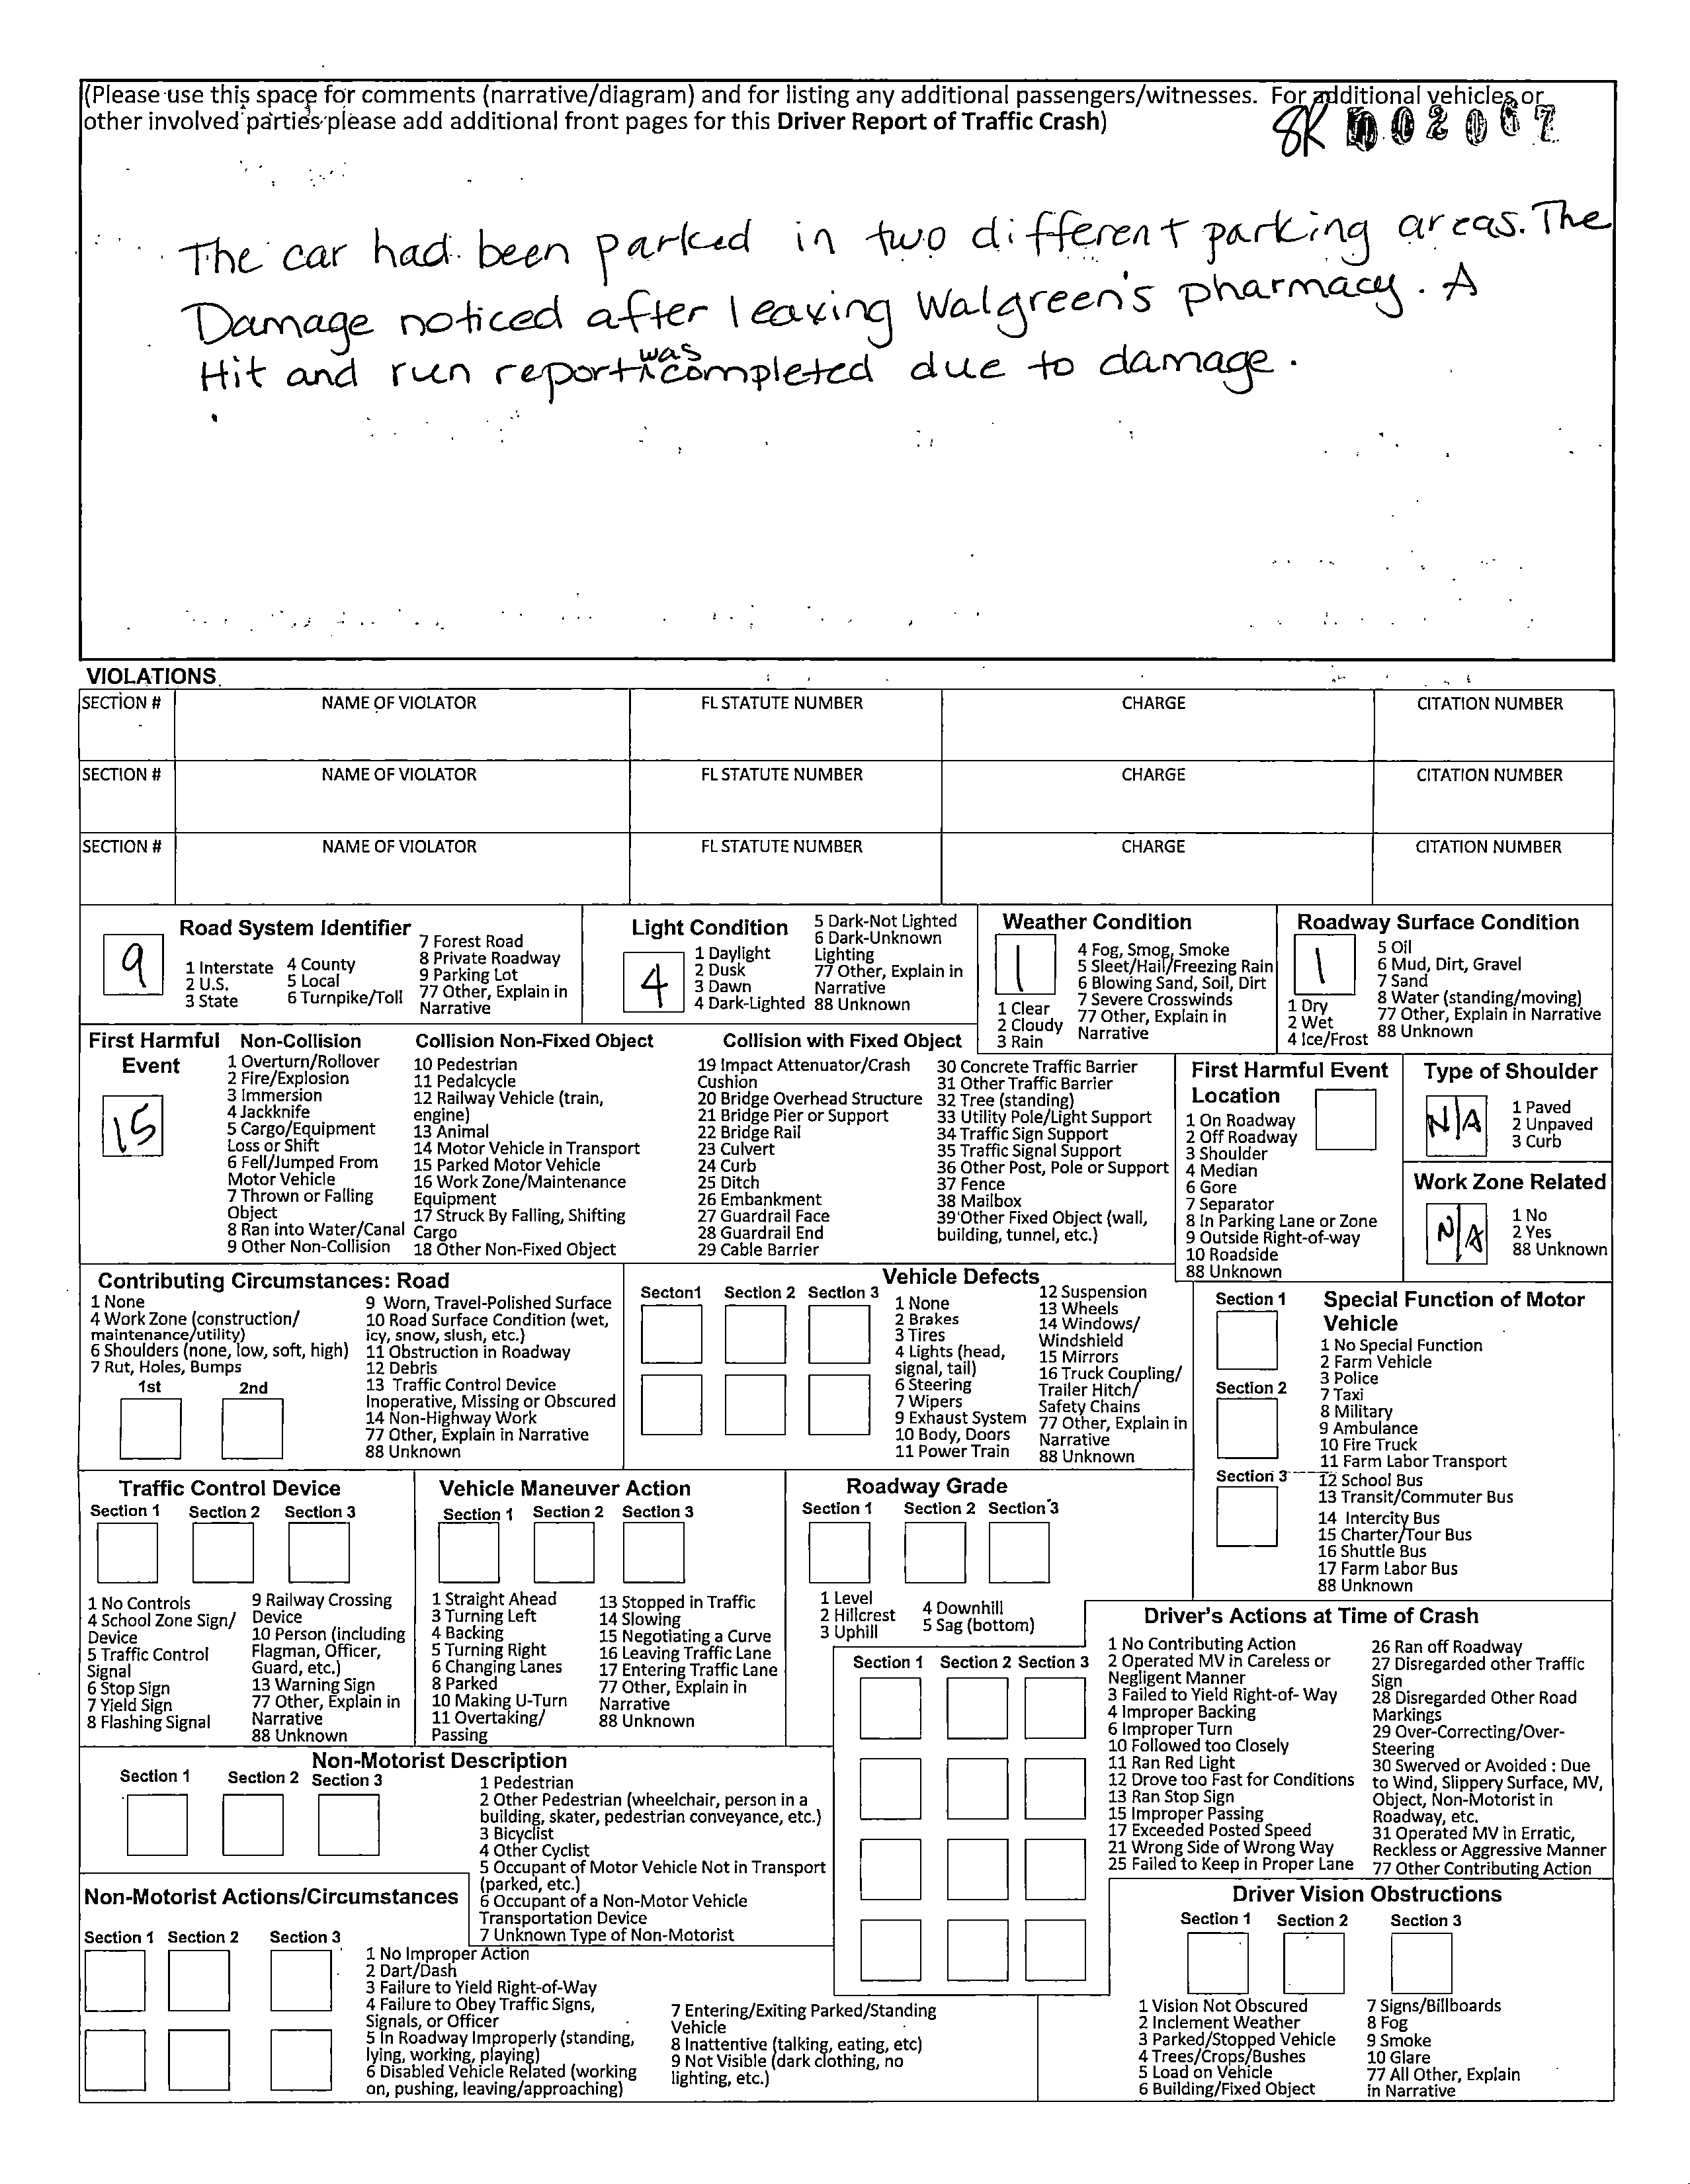 (Please use this space for comments (narrative/diagram) and for listing any additional passengers/witnesses. For additional vehicles or
other involved parties please add additional front pages for this Driver Report of Traffic Crash)
8K 002067
The car had been parked in two different parking areas. The
Damage noticed after leaving Walgreen's pharmacy. A
Hit and run report was completed due to damage.
VIOLATIONS
SECTION # NAME OF VIOLATOR FL STATUTE NUMBER CHARGE CITATION NUMBER
SECTION # NAME OF VIOLATOR FL STATUTE NUMBER CHARGE CITATION NUMBER
SECTION # NAME OF VIOLATOR FL STATUTE NUMBER CHARGE CITATION NUMBER
Road System Identifier
9
1 Interstate
2 U.S.
3 State
4 County
5 Local
6 Turnpike/Toll
7 Forest Road
8 Private Roadway
9 Parking Lot
77 Other, Explain in
Narrative
Light Condition
4
1 Daylight
2 Dusk
3 Dawn
4 Dark-Lighted
5 Dark-Not Lighted
6 Dark-Unknown
Lighting
77 Other, Explain in
Narrative
88 Unknown
Weather Condition
1
1 Clear
2 Cloudy
3 Rain
4 Fog, Smog, Smoke
5 Sleet/Hail/Freezing Rain
6 Blowing Sand, Soil, Dirt
7 Severe Crosswinds
77 Other, Explain in
Narrative
Roadway Surface Condition
1
1 Dry
2 Wet
4 Ice/Frost
5 Oil
6 Mud, Dirt, Gravel
7 Sand
8 Water (standing/moving)
77 Other, Explain in Narrative
88 Unknown
First Harmful
Event
15
Non-Collision
1 Overturn/Rollover
2 Fire/Explosion
3 Immersion
4 Jackknife
5 Cargo/Equipment
Loss or Shift
6 Fell/Jumped From
Motor Vehicle
7 Thrown or Falling
Object
8 Ran into Water/Canal
9 Other Non-Collision
Collision Non-Fixed Object
10 Pedestrian
11 Pedalcycle
12 Railway Vehicle (train,
engine)
13 Animal
14 Motor Vehicle in Transport
15 Parked Motor Vehicle
16 Work Zone/Maintenance
Equipment
17 Struck By Falling, Shifting
Cargo
18 Other Non-Fixed Object
Collision with Fixed Object
19 Impact Attenuator/Crash
Cushion
20 Bridge Overhead Structure
21 Bridge Pier or Support
22 Bridge Rail
23 Culvert
24 Curb
25 Ditch
26 Embankment
27 Guardrail Face
28 Guardrail End
29 Cable Barrier
30 Concrete Traffic Barrier
31 Other Traffic Barrier
32 Tree (standing)
33 Utility Pole/Light Support
34 Traffic Sign Support
35 Traffic Signal Support
36 Other Post, Pole or Support
37 Fence
38 Mailbox
39 Other Fixed Object (wall,
building, tunnel, etc.)
First Harmful Event
Location
1 On Roadway
2 Off Roadway
3 Shoulder
4 Median
6 Gore
7 Separator
8 In Parking Lane or Zone
9 Outside Right-of-way
10 Roadside
88 Unknown
Type of Shoulder
N/A
1 Paved
2 Unpaved
3 Curb
Work Zone Related
N/A
1 No
2 Yes
88 Unknown
Contributing Circumstances: Road
1 None
4 Work Zone (construction/
maintenance/utility)
6 Shoulders (none, low, soft, high)
7 Rut, Holes, Bumps
1st 2nd
9 Worn, Travel-Polished Surface
10 Road Surface Condition (wet,
icy, snow, slush, etc.)
11 Obstruction in Roadway
12 Debris
13 Traffic Control Device
Inoperative, Missing or Obscured
14 Non-Highway Work
77 Other, Explain in Narrative
88 Unknown
Vehicle Defects
Secton1 Section 2 Section 3
1 None
2 Brakes
3 Tires
4 Lights (head,
signal, tail)
6 Steering
7 Wipers
9 Exhaust System
10 Body, Doors
11 Power Train
12 Suspension
13 Wheels
14 Windows/
Windshield
15 Mirrors
16 Truck Coupling/
Trailer Hitch/
Safety Chains
77 Other, Explain in
Narrative
88 Unknown
Special Function of Motor
Vehicle
Section 1
Section 2
Section 3
1 No Special Function
2 Farm Vehicle
3 Police
7 Taxi
8 Military
9 Ambulance
10 Fire Truck
11 Farm Labor Transport
12 School Bus
13 Transit/Commuter Bus
14 Intercity Bus
15 Charter/Tour Bus
16 Shuttle Bus
17 Farm Labor Bus
88 Unknown
Traffic Control Device
Section 1 Section 2 Section 3
1 No Controls
4 School Zone Sign/
Device
5 Traffic Control
Signal
6 Stop Sign
7 Yield Sign
8 Flashing Signal
9 Railway Crossing
Device
10 Person (including
Flagman, Officer,
Guard, etc.)
13 Warning Sign
77 Other, Explain in
Narrative
88 Unknown
Vehicle Maneuver Action
Section 1 Section 2 Section 3
1 Straight Ahead
3 Turning Left
4 Backing
5 Turning Right
6 Changing Lanes
8 Parked
10 Making U-Turn
11 Overtaking/
Passing
13 Stopped in Traffic
14 Slowing
15 Negotiating a Curve
16 Leaving Traffic Lane
17 Entering Traffic Lane
77 Other, Explain in
Narrative
88 Unknown
Roadway Grade
Section 1 Section 2 Section 3
1 Level
2 Hillcrest
3 Uphill
4 Downhill
5 Sag (bottom)
Driver's Actions at Time of Crash
Section 1 Section 2 Section 3
1 No Contributing Action
2 Operated MV in Careless or
Negligent Manner
3 Failed to Yield Right-of- Way
4 Improper Backing
6 Improper Turn
10 Followed too Closely
11 Ran Red Light
12 Drove too Fast for Conditions
13 Ran Stop Sign
15 Improper Passing
17 Exceeded Posted Speed
21 Wrong Side of Wrong Way
25 Failed to Keep in Proper Lane
26 Ran off Roadway
27 Disregarded other Traffic
Sign
28 Disregarded Other Road
Markings
29 Over-Correcting/Over-
Steering
30 Swerved or Avoided : Due
to Wind, Slippery Surface, MV,
Object, Non-Motorist in
Roadway, etc.
31 Operated MV in Erratic,
Reckless or Aggressive Manner
77 Other Contributing Action
Non-Motorist Description
Section 1 Section 2 Section 3
1 Pedestrian
2 Other Pedestrian (wheelchair, person in a
building, skater, pedestrian conveyance, etc.)
3 Bicyclist
4 Other Cyclist
5 Occupant of Motor Vehicle Not in Transport
(parked, etc.)
6 Occupant of a Non-Motor Vehicle
Transportation Device
7 Unknown Type of Non-Motorist
Non-Motorist Actions/Circumstances
Section 1 Section 2 Section 3
1 No Improper Action
2 Dart/Dash
3 Failure to Yield Right-of-Way
4 Failure to Obey Traffic Signs,
Signals, or Officer
5 In Roadway Improperly (standing,
lying, working, playing)
6 Disabled Vehicle Related (working
on, pushing, leaving/approaching)
7 Entering/Exiting Parked/Standing
Vehicle
8 Inattentive (talking, eating, etc)
9 Not Visible (dark clothing, no
lighting, etc.)
Driver Vision Obstructions
Section 1 Section 2 Section 3
1 Vision Not Obscured
2 Inclement Weather
3 Parked/Stopped Vehicle
4 Trees/Crops/Bushes
5 Load on Vehicle
6 Building/Fixed Object
7 Signs/Billboards
8 Fog
9 Smoke
10 Glare
77 All Other, Explain
in Narrative